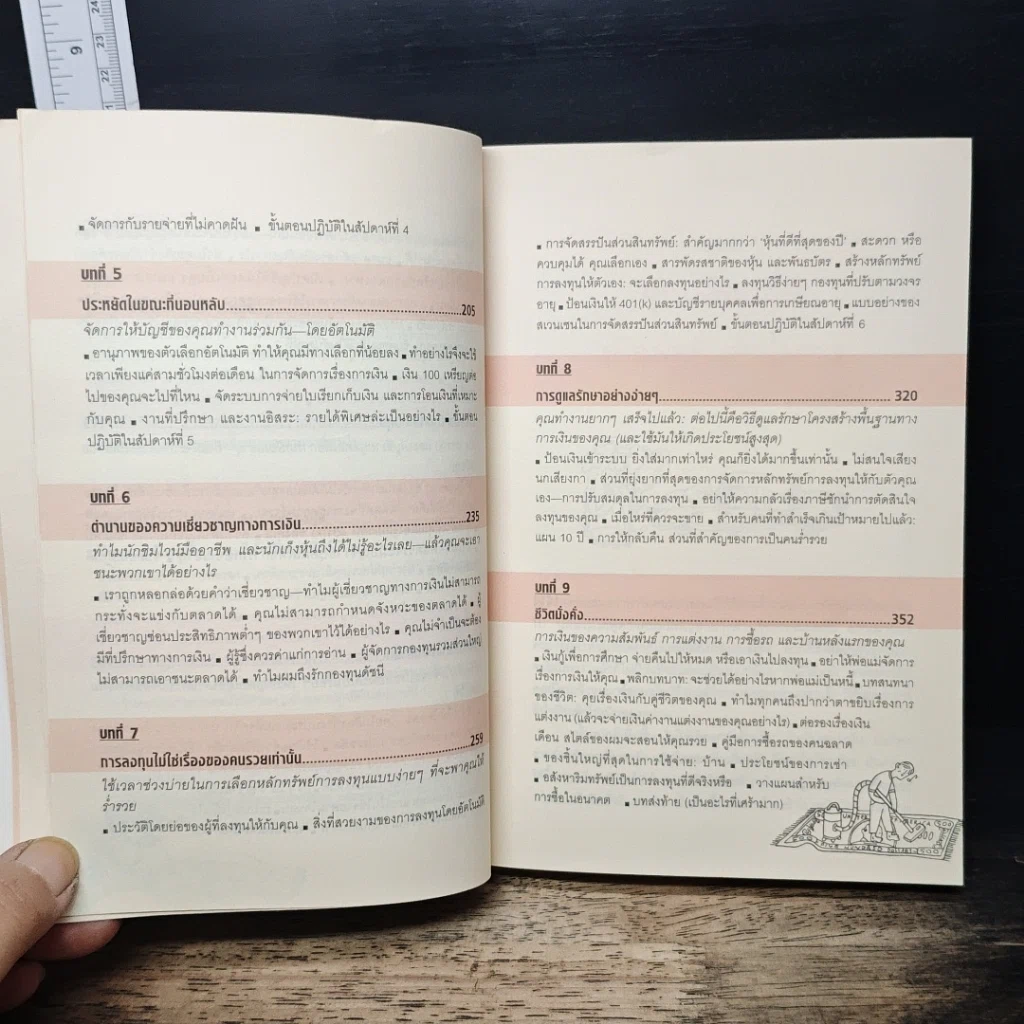 ▪ จัดการกับรายจ่ายที่ไม่คาดฝัน ▪ ขั้นตอนปฏิบัติในสัปดาห์ที่ 4
บทที่ 5
ประหยัดในขณะที่นอนหลับ...205
จัดการให้บัญชีของคุณทำงานร่วมกัน—โดยอัตโนมัติ
▪ อานุภาพของตัวเลือกอัตโนมัติ ทำให้คุณมีทางเลือกที่น้อยลง ▪ ทำอย่างไรจึงจะใช้
เวลาเพียงแค่สามชั่วโมงต่อเดือน ในการจัดการเรื่องการเงิน ▪ เงิน 100 เหรียญต่อ
ไปของคุณจะไปที่ไหน ▪ จัดระบบการจ่ายใบเรียกเก็บเงิน และการโอนเงินที่เหมาะ
กับคุณ ▪ งานที่ปรึกษา และงานอิสระ: รายได้พิเศษล่ะเป็นอย่างไร ▪ ขั้นตอน
ปฏิบัติในสัปดาห์ที่ 5
บทที่ 6
ตำนานของความเชี่ยวชาญทางการเงิน...235
ทำไมนักชิมไวน์มืออาชีพ และนักเก็งหุ้นถึงได้ไม่รู้อะไรเลย—แล้วคุณจะเอา
ชนะพวกเขาได้อย่างไร
▪ เราถูกหลอกล่อด้วยคำว่าเชี่ยวชาญ—ทำไมผู้เชี่ยวชาญทางการเงินไม่สามารถ
กระทั่งจะแข่งกับตลาดได้ ▪ คุณไม่สามารถกำหนดจังหวะของตลาดได้ ▪ ผู้
เชี่ยวชาญซ่อนประสิทธิภาพต่ำๆ ของพวกเขาไว้ได้อย่างไร ▪ คุณไม่จำเป็นจะต้อง
มีที่ปรึกษาทางการเงิน ▪ ผู้รู้ซึ่งควรค่าแก่การอ่าน ▪ ผู้จัดการกองทุนรวมส่วนใหญ่
ไม่สามารถเอาชนะตลาดได้ ▪ ทำไมผมถึงรักกองทุนดัชนี
บทที่ 7
การลงทุนไม่ใช่เรื่องของคนรวยเท่านั้น...259
ใช้เวลาช่วงบ่ายในการเลือกหลักทรัพย์การลงทุนแบบง่ายๆ ที่จะพาคุณให้
ร่ำรวย
▪ ประวัติโดยย่อของผู้ที่ลงทุนให้กับคุณ ▪ สิ่งที่สวยงามของการลงทุนโดยอัตโนมัติ
▪ การจัดสรรปันส่วนสินทรัพย์: สำคัญมากกว่า 'หุ้นที่ดีที่สุดของปี' ▪ สะดวก หรือ
ควบคุมได้ คุณเลือกเอง ▪ สารพัดรสชาติของหุ้น และพันธบัตร ▪ สร้างหลักทรัพย์
การลงทุนให้ตัวเอง: จะเลือกลงทุนอย่างไร ▪ ลงทุนวิธีง่ายๆ กองทุนที่ปรับตามวงจร
อายุ ▪ ป้อนเงินให้ 401(k) และบัญชีรายบุคคลเพื่อการเกษียณอายุ ▪ แบบอย่างของ
สเวนเซนในการจัดสรรปันส่วนสินทรัพย์ ▪ ขั้นตอนปฏิบัติในสัปดาห์ที่ 6
บทที่ 8
การดูแลรักษาอย่างง่ายๆ...320
คุณทำงานยากๆ เสร็จไปแล้ว: ต่อไปนี้คือวิธีดูแลรักษาโครงสร้างพื้นฐานทาง
การเงินของคุณ (และใช้มันให้เกิดประโยชน์สูงสุด)
▪ ป้อนเงินเข้าระบบ ยิ่งใส่มากเท่าไหร่ คุณก็ยิ่งได้มากขึ้นเท่านั้น ▪ ไม่สนใจเสียง
นกเสียงกา ▪ ส่วนที่ยุ่งยากที่สุดของการจัดการหลักทรัพย์การลงทุนให้กับตัวคุณ
เอง—การปรับสมดุลในการลงทุน ▪ อย่าให้ความกลัวเรื่องภาษีชักนำการตัดสินใจ
ลงทุนของคุณ ▪ เมื่อไหร่ที่ควรจะขาย ▪ สำหรับคนที่ทำสำเร็จเกินเป้าหมายไปแล้ว:
แผน 10 ปี ▪ การให้กลับคืน ส่วนที่สำคัญของการเป็นคนร่ำรวย
บทที่ 9
ชีวิตมั่งคั่ง...352
การเงินของความสัมพันธ์ การแต่งงาน การซื้อรถ และบ้านหลังแรกของคุณ
▪ เงินกู้เพื่อการศึกษา จ่ายคืนไปให้หมด หรือเอาเงินไปลงทุน ▪ อย่าให้พ่อแม่จัดการ
เรื่องการเงินให้คุณ ▪ พลิกบทบาท: จะช่วยได้อย่างไรหากพ่อแม่เป็นหนี้ ▪ บทสนทนา
ของชีวิต: คุยเรื่องเงินกับคู่ชีวิตของคุณ ▪ ทำไมทุกคนถึงปากว่าตาขยิบเรื่องการ
แต่งงาน (แล้วจะจ่ายเงินค่างานแต่งงานของคุณอย่างไร) ▪ ต่อรองเรื่องเงิน
เดือน สไตล์ของผมจะสอนให้คุณรวย ▪ คู่มือการซื้อรถของคนฉลาด
▪ ของชิ้นใหญ่ที่สุดในการใช้จ่าย: บ้าน ▪ ประโยชน์ของการเช่า
▪ อสังหาริมทรัพย์เป็นการลงทุนที่ดีจริงหรือ ▪ วางแผนสำหรับ
การซื้อในอนาคต ▪ บทส่งท้าย (เป็นอะไรที่เศร้ามาก)